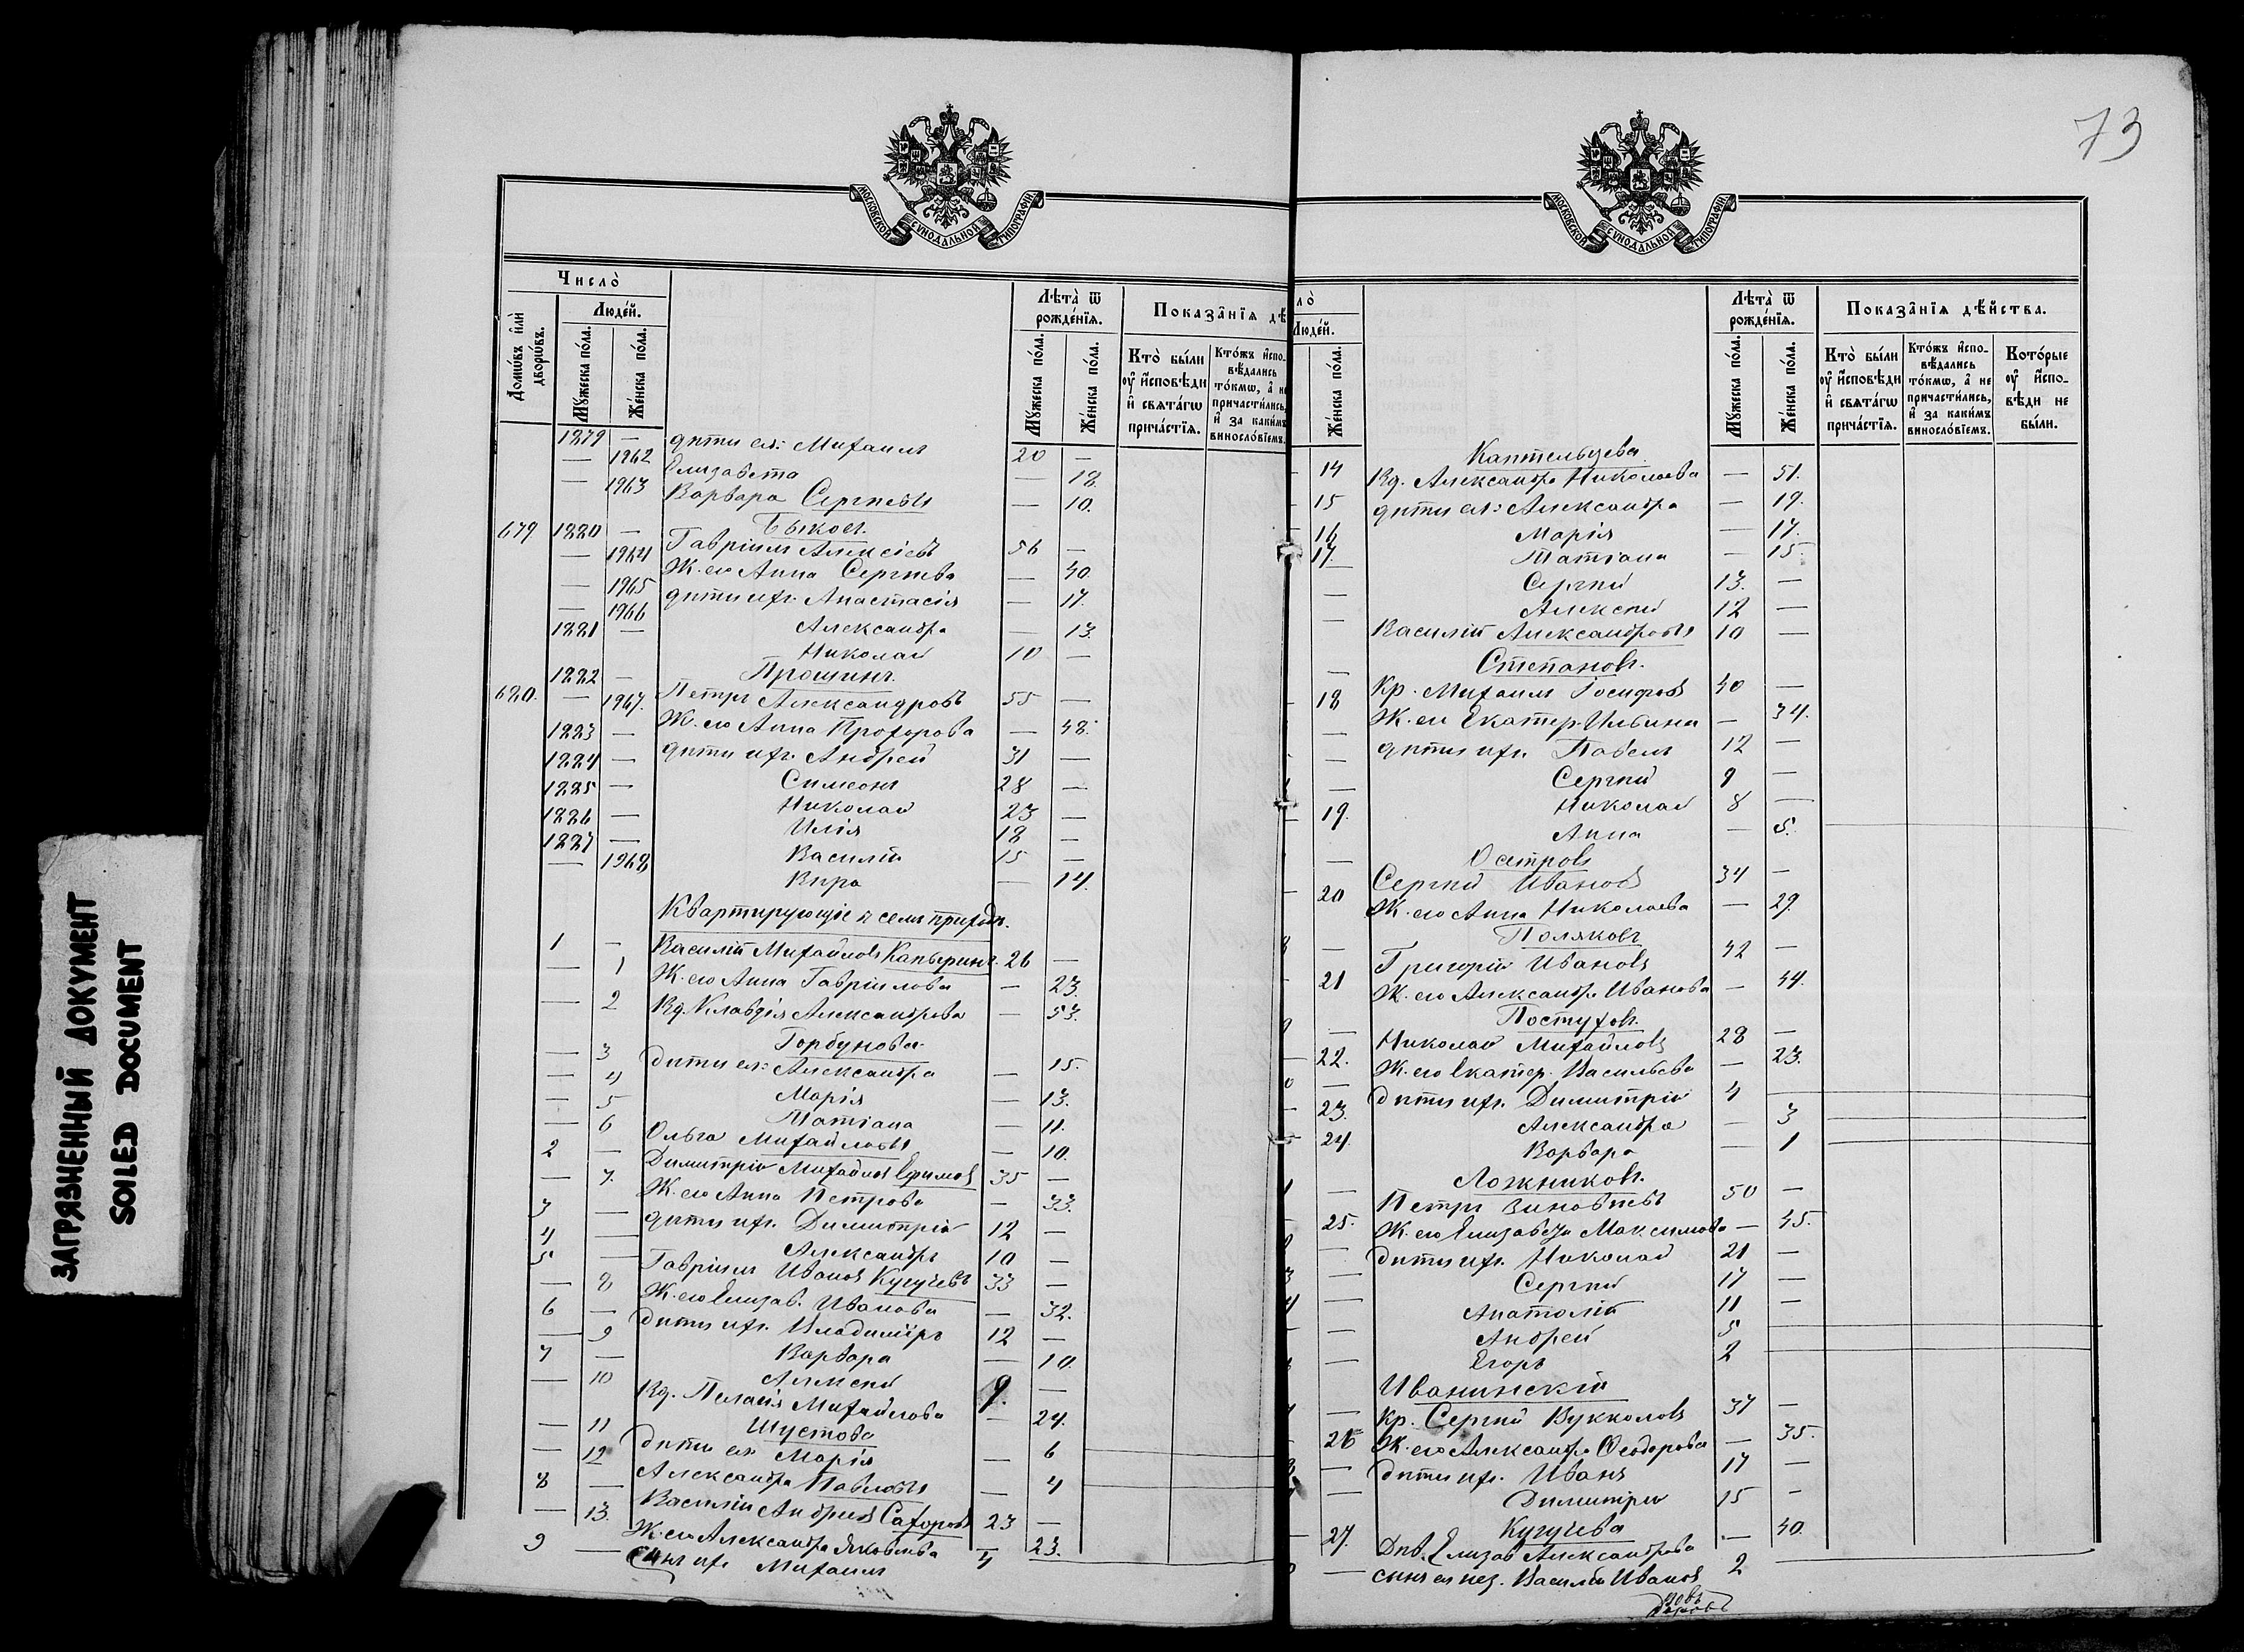 73
ЗАГРЯЗНЕННЫЙ ДОКУМЕНТ
SOILED DOCUMENT
МОСКОВСКОЙ СѴНОДАЛЬНОЙ ТИПОГРАФІИ
Число̀
Домѡ́въ и҆лѝ дворѡ́въ.
Люде́й.
Мꙋ́жеска по́ла.
Же́нска по́ла.
Лѣта̀ ѿ рожде́нїѧ.
Мꙋ́жеска по́ла.
Же́нска по́ла.
Показа̂нїѧ дѣ
Кто̀ бы́ли оу҆ и҆сповѣди и҆ свѧта́гѡ прича́стїѧ.
Кто́жъ и҆спо-вѣдались то́кмѡ, а҆ не причасти́лись, и҆ за каки́мъ винослóвїемъ.
1879 — дѣти ея: Михаилъ 20 —
— 1962 Елизавета — 18.
— 1963 Варвара Сергѣевы — 10.
Быковъ.
679 1880 — Гавріилъ Алексіевъ 56 —
— 1964 Ж. его Анна Сергѣева — 40.
— 1965 дѣти ихъ. Анастасія — 17.
— 1966 Александра — 13.
1881 — Николай 10 —
Прошинъ.
680. 1882 — Петръ Александровъ 55 —
— 1967. Ж. его Анна Прохорова — 48.
1883 — дѣти ихъ. Андрей 31 —
1884 — Симеонъ 28 —
1885 — Николай 23 —
1886 — Илія 18 —
1887 — Василій 15 —
— 1968 Вѣра — 14.
Квартирующіе въ семъ приходѣ.
1 — Василій Михайловъ Капыринъ. 26 —
— 1 Ж. его Анна Гавріилова — 23.
— 2 Вд. Клавдія Александрова — 53.
Горбунова.
— 3 дѣти ея: Александра — 15.
— 4 Марія — 13.
— 5 Татіана — 11.
— 6 Ольга Михайловы — 10.
2 — Димитрій Михайловъ Ефимовъ 35 —
— 7. Ж. его Анна Петрова — 33.
3 — дѣти ихъ. Димитрій 12 —
4 — Александръ 10 —
5 — Гавріилъ Ивановъ Кугучевъ 33 —
— 8 Ж. его Елизав. Иванова — 32.
6 — дѣти ихъ. Владиміръ 12 —
— 9 Варвара — 10.
7 — Алексѣй 9. —
— 10 Вд. Пелагія Михайлова — 24.
Шустова
— 11 дѣти ея Марія — 6
— 12 Александра Павловы — 4
8 — Василій Андреевъ Сахоровъ 23 —
— 13. Ж. его Александра Яковлева — 23.
9 — Сынъ ихъ Михаилъ 4
МОСКОВСКОЙ СѴНОДАЛЬНОЙ ТИПОГРАФІИ
ло̀
Люде́й.
Же́нска по́ла.
Лѣта̀ ѿ рожде́нїѧ.
Мꙋ́жеска по́ла.
Же́нска по́ла.
Показа̂нїѧ дѣ́йства.
Кто̀ бы́ли оу҆ и҆сповѣди и҆ свѧта́гѡ прича́стїѧ.
Кто́жъ и҆спо-вѣдались то́кмѡ, а҆ не причасти́лись, и҆ за каки́мъ винослóвїемъ.
Кото́рые оу҆ и҆спо-вѣди не бы́ли.
Каптельцева
14 Вд. Александра Николаева — 51.
15 дѣти ея: Александра — 19.
16 Марія — 17.
17. Татіана — 15.
— Сергѣй 13. —
— Алексѣй 12 —
— Василій Александровы 10 —
Степановъ.
— Кр. Михаилъ Іосифовъ 40 —
18 Ж. его Екатер. Ильина — 34.
— дѣти ихъ. Павелъ 12 —
— Сергѣй 9 —
— Николай 8 —
19. Анна — 5.
Остров
— Сергѣй Ивановъ 34 —
20 Ж. его Анна Николаева — 29.
Поляковъ
— Григорій Ивановъ 42 —
21 Ж. его Александра Иванова — 44.
Постуховъ.
— Николай Михайловъ 28 —
22. Ж. его Екатер. Васильева — 23.
— дѣти ихъ. Димитрій 4
23. Александра — 3
24. Варвара — 1
Ложниковъ.
— Петръ Зиновѣевъ 50 —
25. Ж. его Елизавета Максимова — 45.
— дѣти ихъ. Николай 21 —
— Сергѣй 17 —
— Анатолій 11 —
— Андрей 5
— Егоръ 2
Иванинскій
— Кр. Сергѣй Вукколовъ 37 —
26 Ж. его Александра Ѳеодорова — 35.
— дѣти ихъ. Иванъ 17 —
— Димитрій 15 —
Кугучева
27. Дѣв. Елизав Александрова — 40.
— сынъ ея нез. Василій Ивановъ 2